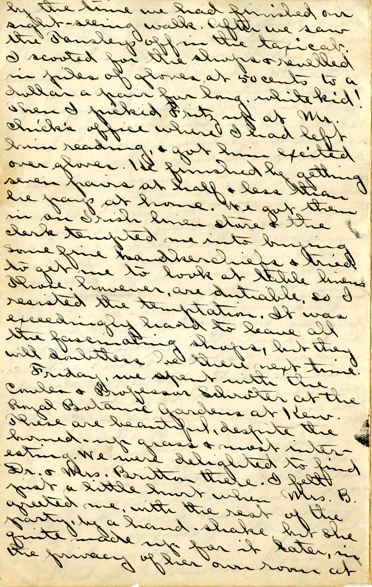 by the time we had finished our
sight-seeing walk after we saw
the Tansleys off in the taxicab.
I scooted for the shops & revelled
in piles of gloves at 50 cents to a
dollar a pair for long white kid!
Then I picked Fritz up at Mr.
office where I had left
him reading, & got him excited
over gloves. He finished by getting
seven pairs at half & less than
he pays at home. We got them
in an Irish linen store & the
clerk tempted me into buying
some fine handkerchiefs & tried
to get me to look at table linens
Those, however, are dutiable, so I
resisted the temptation. It was
exceedingly hard to leave all
the fascinating shops, but they
will doubtless be there next time.
Friday we spent with the
Cowles & Professor Schröter at the
Royal Botanic Gardens at Kew.
These are beautiful, despite the
burned-up grass & most inter-
esting. We were delighted to find
Dr. & Mrs. Britton there. I felt
just a little hurt when Mrs. B.
greeted me, with the rest of the
party, by a hand-shake, but she
quite made up for it later, in
the privacy of her own room at